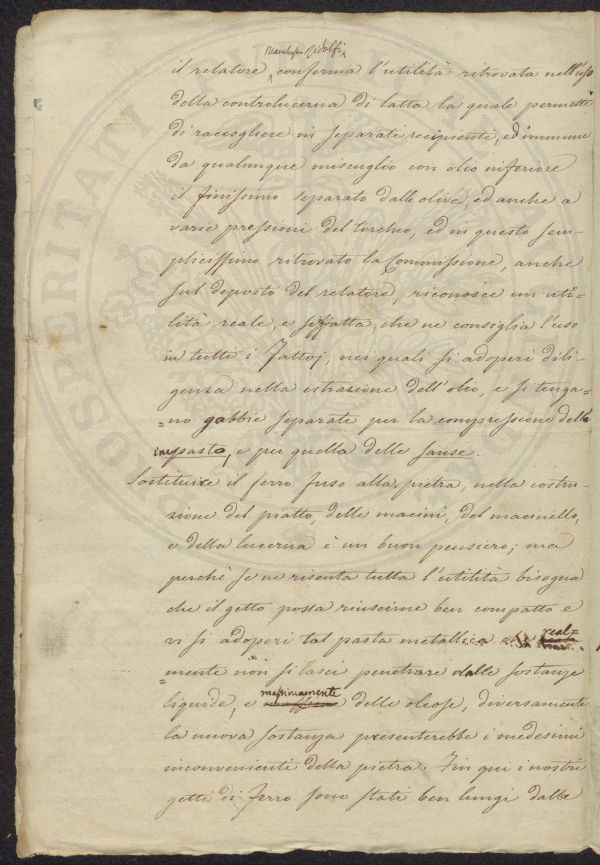 Marchese Ridolfi
il relatore conferma l'utilità ritrovata nell'uso
della controlucerna di latta la quale permette
di raccogliere in separati recipienti, ed immune
da qualunque miscuglio con olio inferiore
il finissimo separato dalle olive, ed anche a
varie pressioni del torchio, ed in questo sem-
plicissimo ritrovato la Commissione, anche
sul deposto del relatore, riconosce un uti-
lità reale, e siffatta, che ne consiglia l'uso
in tutti i Fattoj, nei quali si adoperi dili-
genza nella estrazione dell'olio, e si tenga-
=no gabbie separate per la compressione della
impasto, e per quella delle sanse.
Sostituire il ferro fuso alla pietra, nella costru-
zione del piatto, delle macini, del macinello,
e della lucerna è un buon pensiero; ma
perchè se ne risenta tutta l'utilità bisogna
che il getto possa riuscirne ben compatto e
vi si adoperi tal pasta metallica che real=
=mente non si lasci penetrare dalle sostanze
liquide, e massimamente delle oleose, diversamente
la nuova sostanza presenterebbe i medesimi
inconvenienti della pietra. Fin qui i nostri
getti di ferro sono stati ben lungi dalle
PROSPERITATI